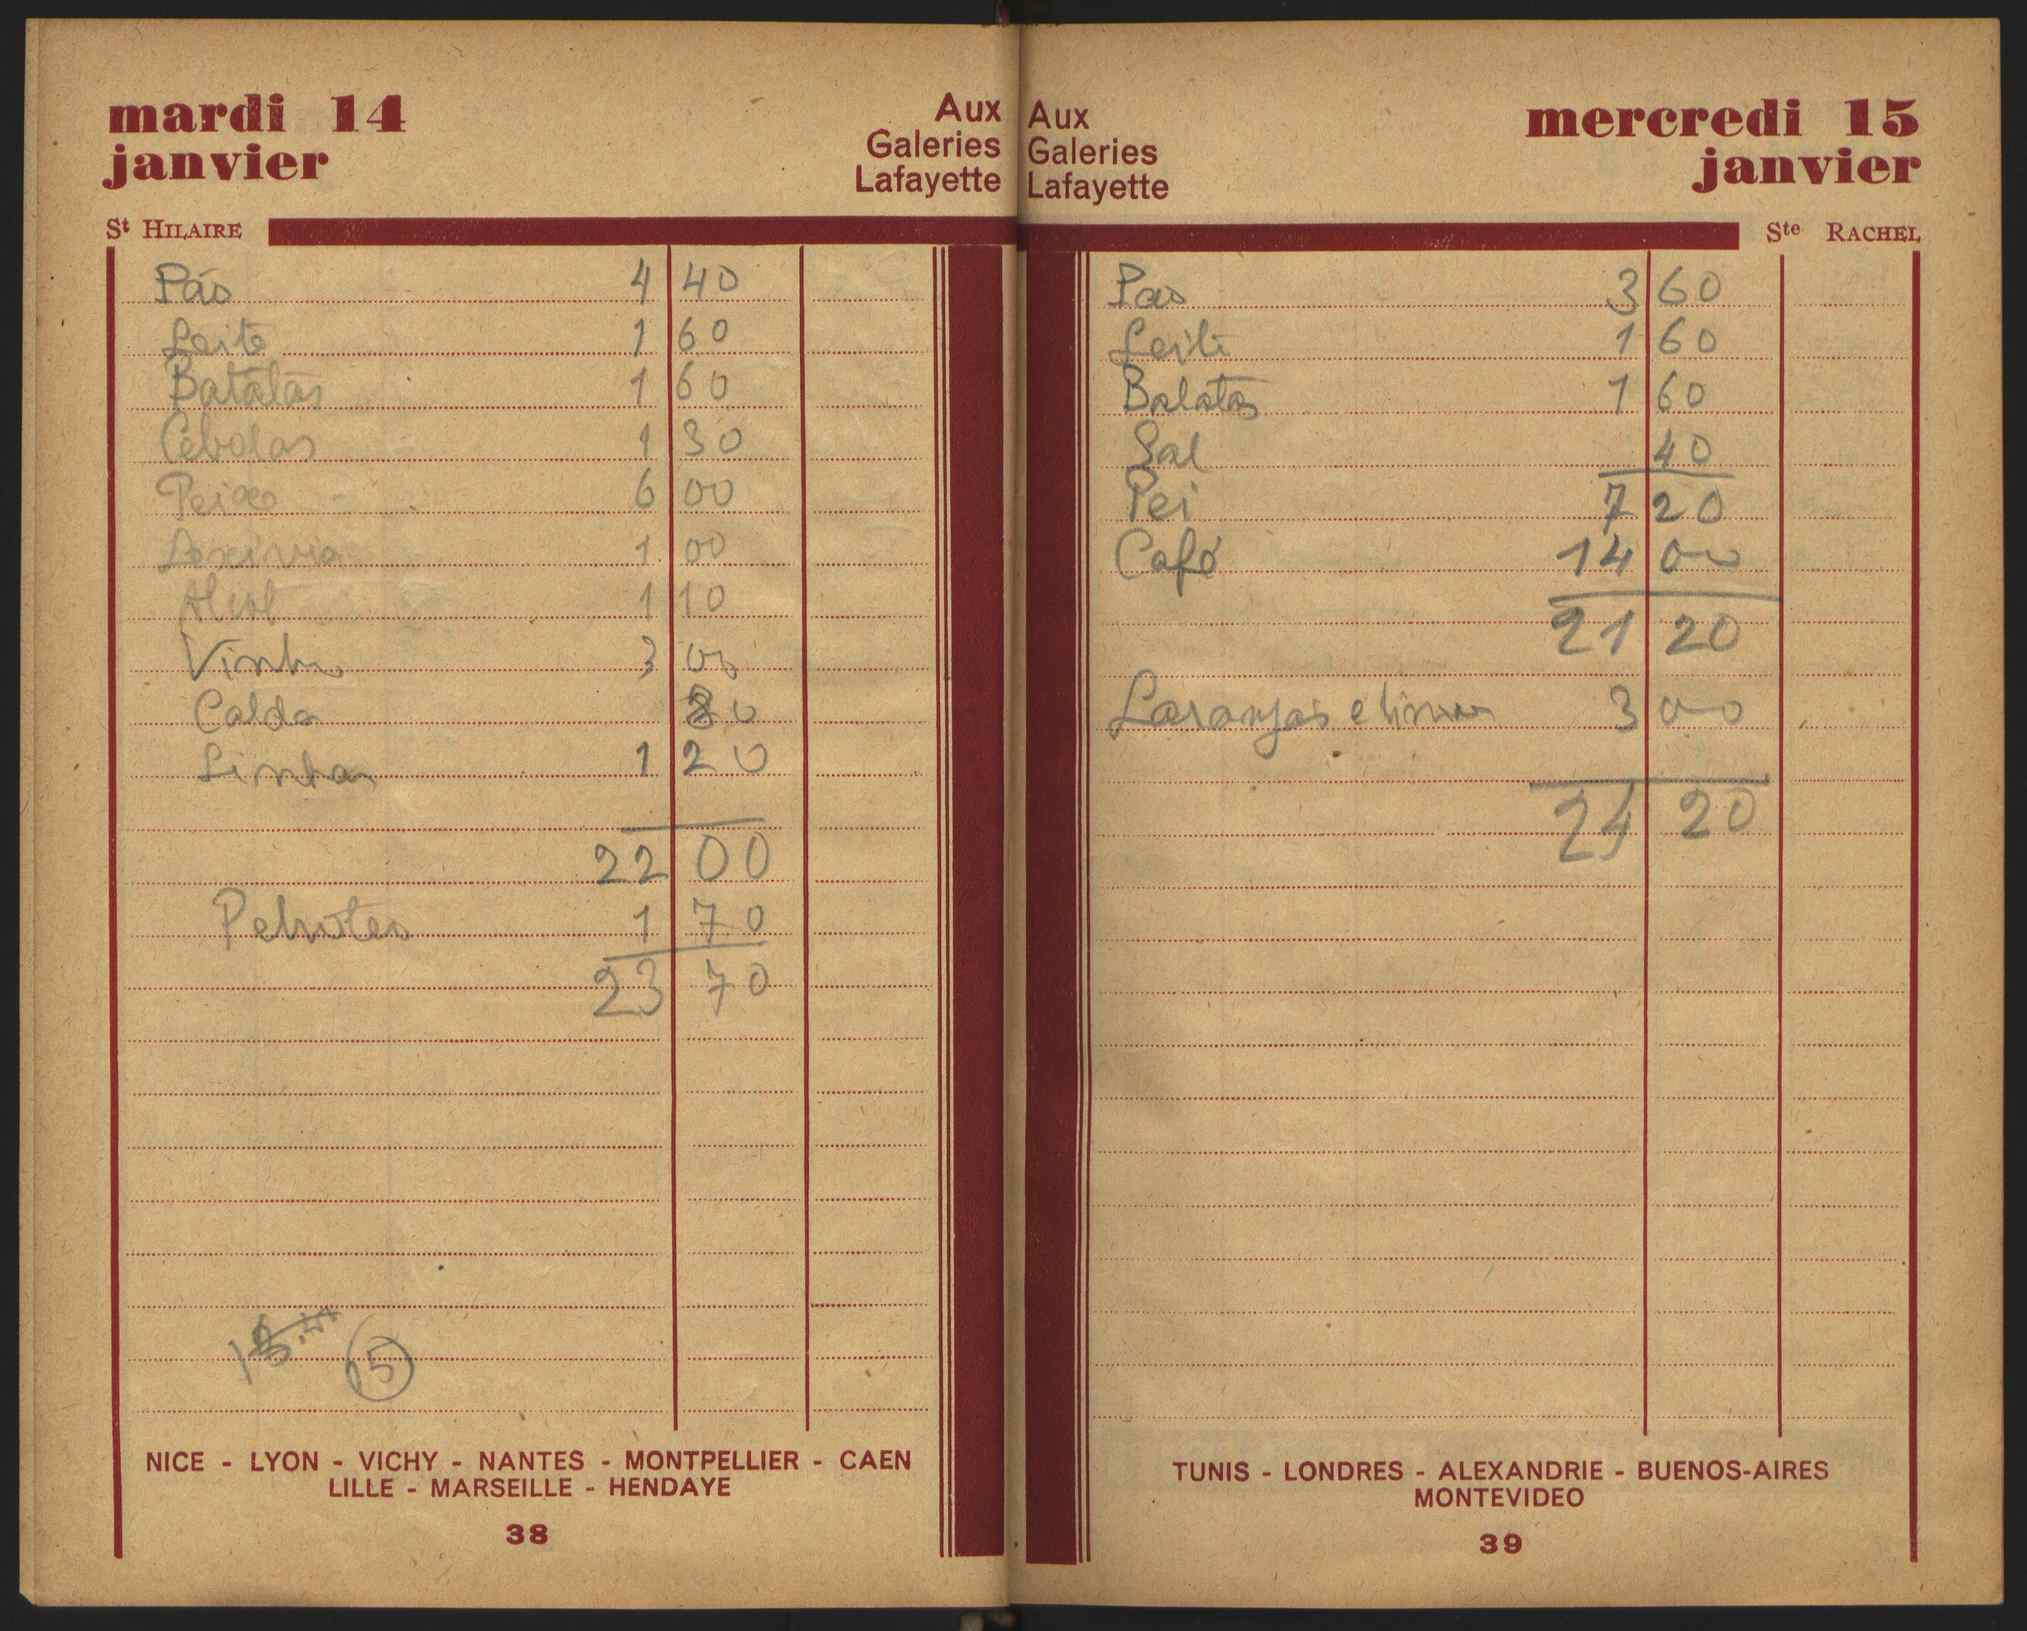 mardi 14
janvier
Aux
Galeries
Lafayette
St HILAIRE
Pão 4 40
Leite 1 60
Batatas 1 60
Cebolas 1 30
Peixe 6 00
Lexivia 1 00
1 10
Vinho 3 00
Calda 80
Linhas 1 20
22 00
1 70
23 70
15
NICE - LYON - VICHY - NANTES - MONTPELLIER - CAEN
LILLE - MARSEILLE - HENDAYE
38
Aux
Galeries
Lafayette
mercredi 15
janvier
Ste RACHEL
Pao 3 60
Leite 1 60
Batatas 1 60
Sal 40
Pei 7 20
Café 14 00
21 20
Laranjas e 3 00
24 20
TUNIS - LONDRES - ALEXANDRIE - BUENOS-AIRES
MONTEVIDEO
39